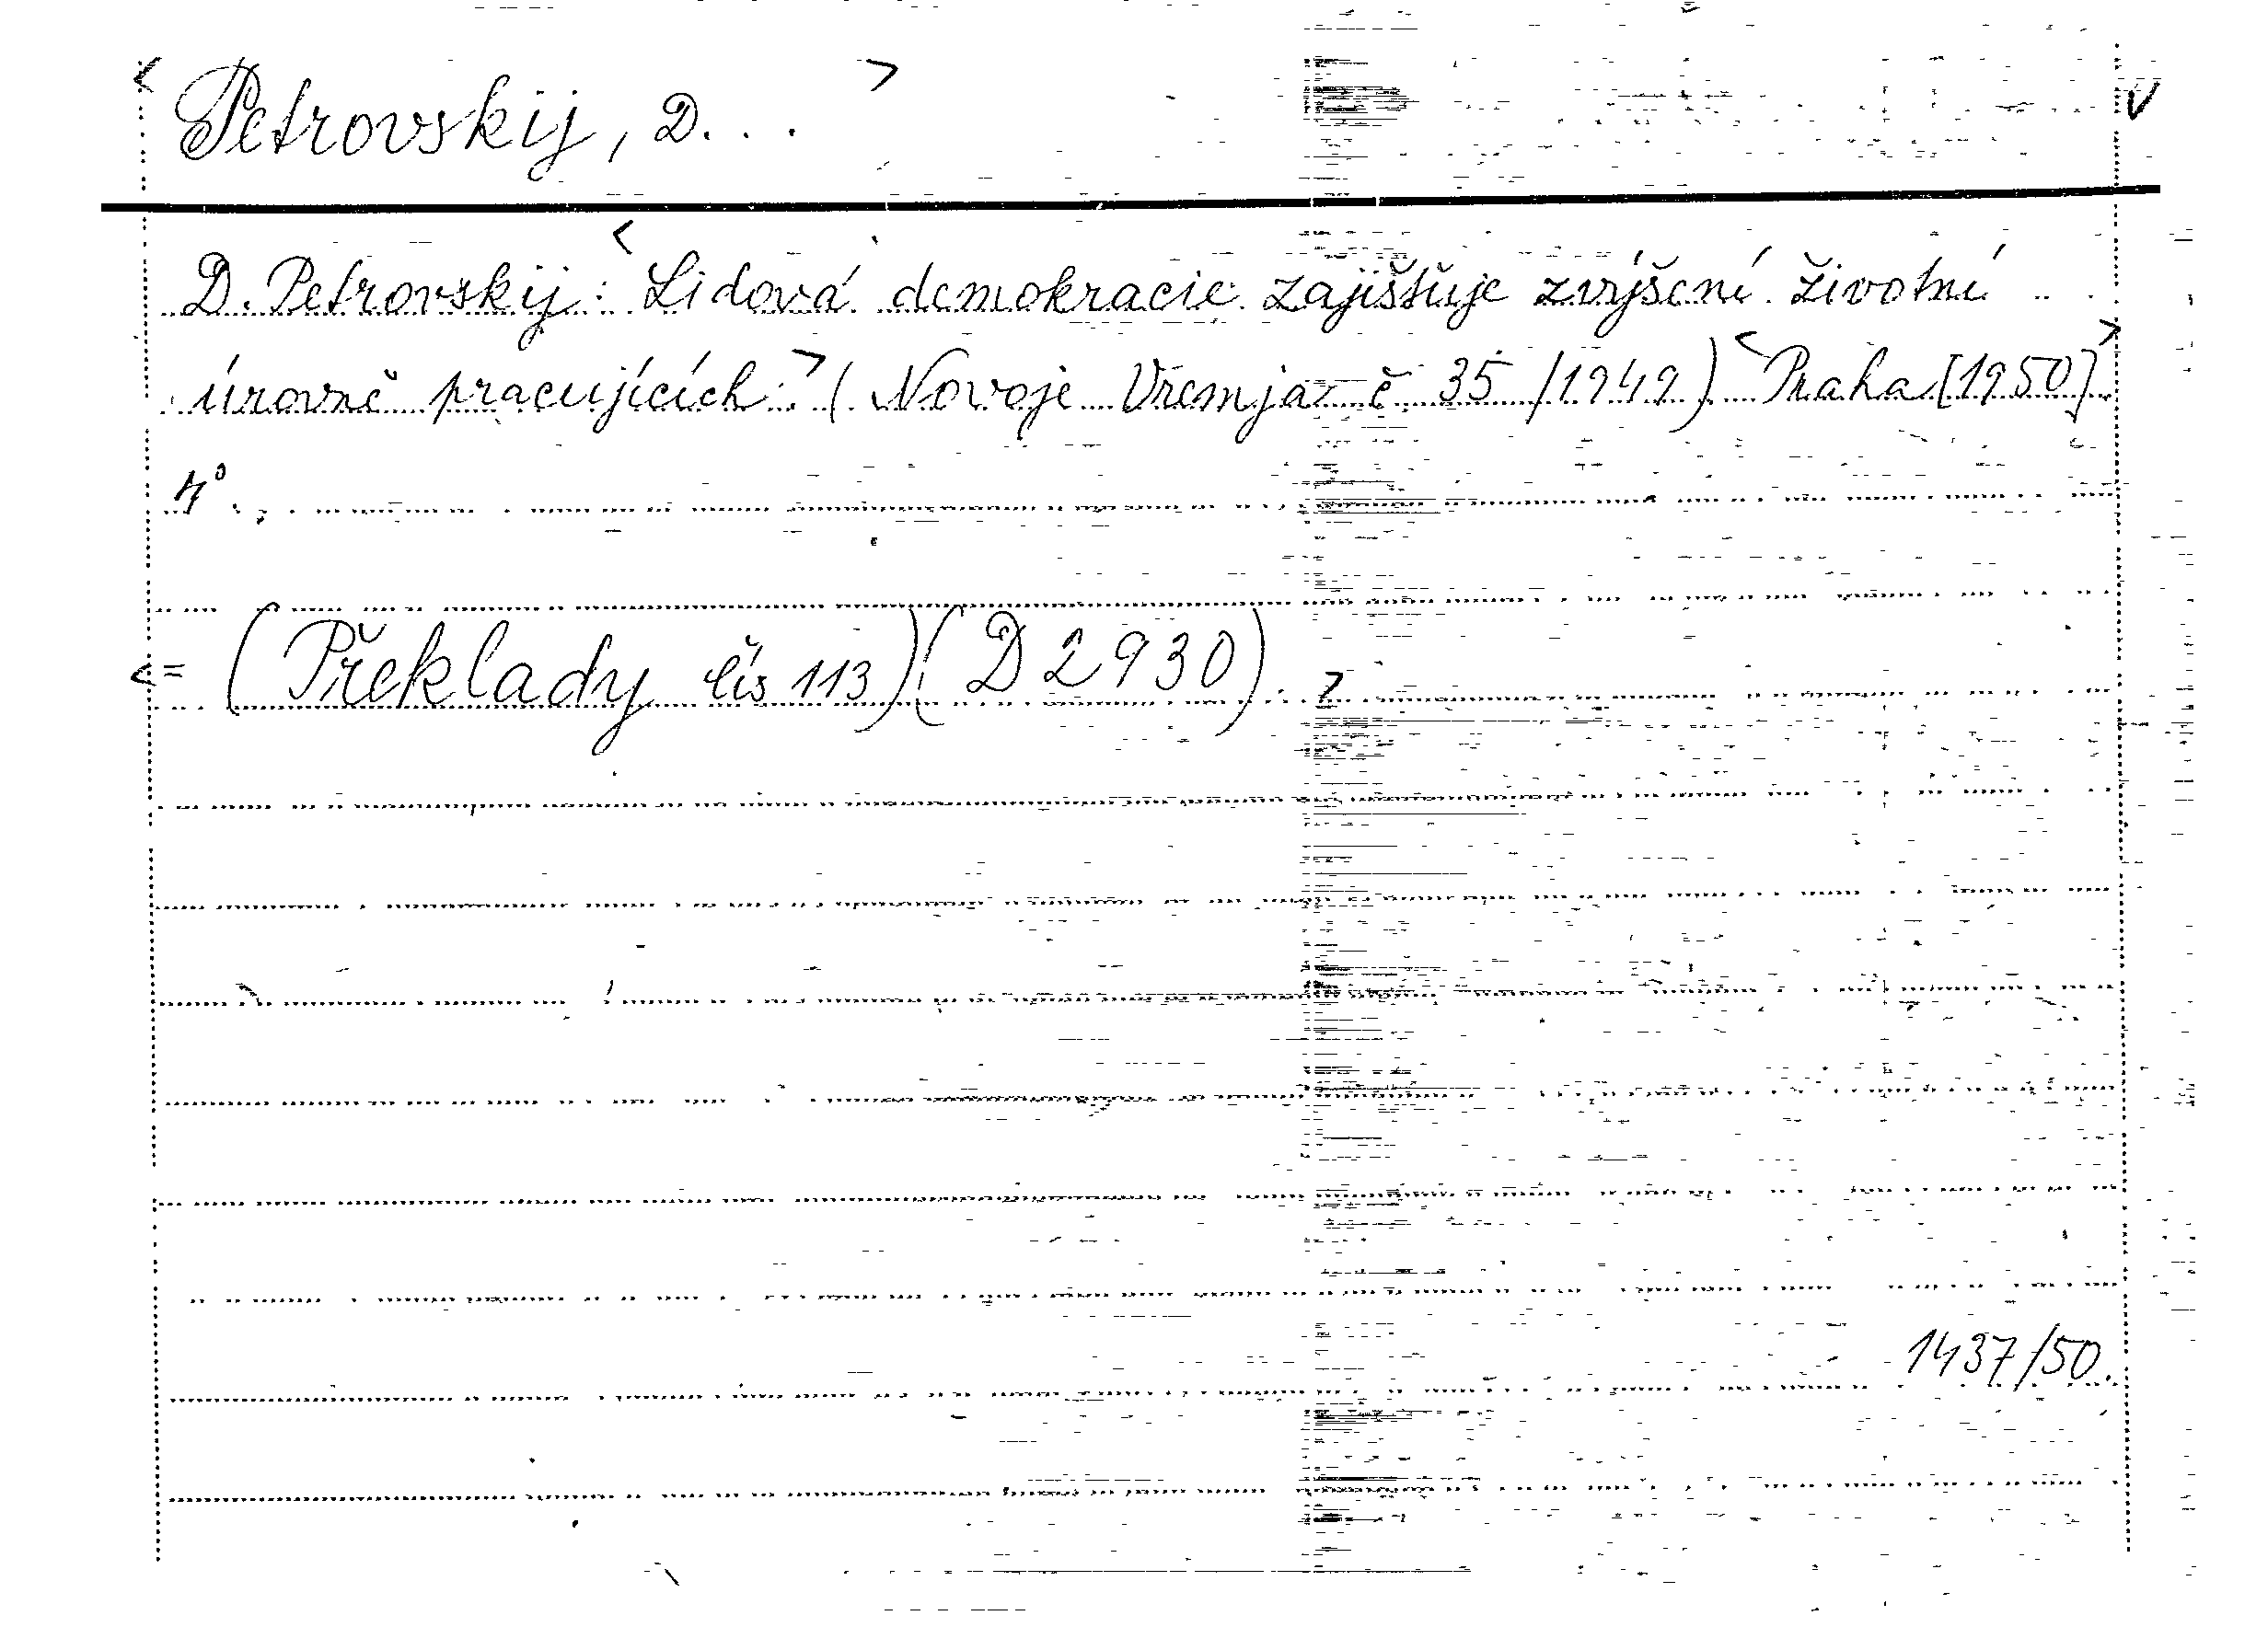 < Petrovskij, D. . . > V
D. Petrovskij: < Lidová demokracie zajišťuje zvýšení životní
úrovně pracujících. > (Novoje Vremja č. 35/1949) < Praha [1950] >
4°.
< = (Překlady čís 113) (D 2930). >
1437/50.